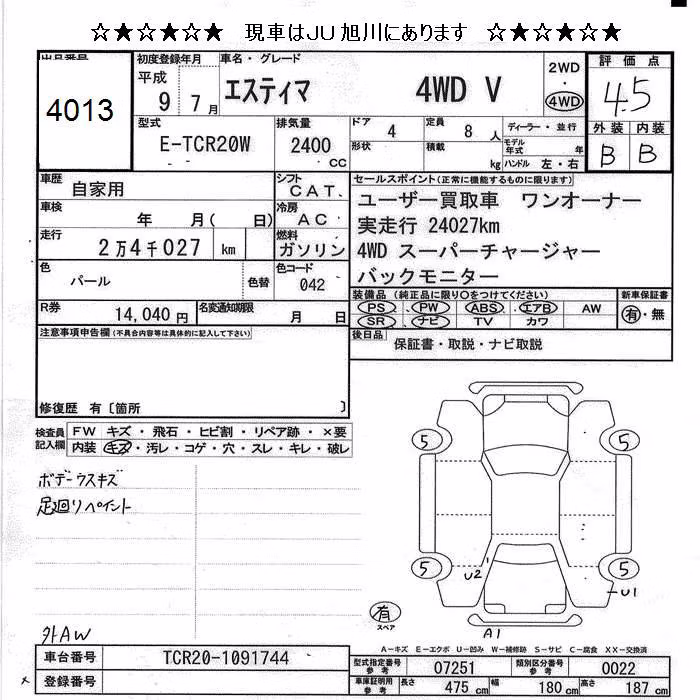 ☆★☆★☆★ 現車はJU旭川にあります ☆★☆★☆★
出品番号
4013
初度登録年月
平成
9 7月
車名・グレード
エスティマ 4WD V
2WD
・
4WD
評価点
4.5
型式
E-TCR20W
排気量
2400
CC
ドア
4
定員
8 人
ディーラー・並行
形状
積載
kg
モデル年式 年
ハンドル 左・右
外装 内装
B B
車歴
自家用
シフト
CAT.
車検
年 月( 日)
冷房
AC
走行
2万4千027 km
燃料
ガソリン
色
パール
色替
色コード
042
R券
14,040 円
名変通知期限
月 日
セールスポイント(正常に機能するものに限ります)
ユーザー買取車 ワンオーナー
実走行 24027km
4WD スーパーチャージャー
バックモニター
装備品 (純正品に限り○をつけてください)
PS、PW、ABS、エアB AW
SR、ナビ TV カワ
新車保証書
有・無
後日品
保証書・取説・ナビ取説
注意事項申告欄(不具合内容等は具体的に記入して下さい)
修復歴 有〔箇所 〕
検査員記入欄
FW キズ・飛石・ヒビ割・リペア跡・×要
内装 キズ・汚レ・コゲ・穴・スレ・キレ・破レ
ボデーウスキズ
足廻リペイント
外AW
5
5
5
5
U2
U1
A1
有
スペア
A－キズ E－エクボ U－凹み W－補修跡 S－サビ C－腐食 XX－交換済
車台番号
TCR20-1091744
登録番号
型式指定番号
参考
07251
類別区分番号
参考
0022
車庫証明用
参考
長さ 475 cm
幅 180 cm
高さ 187 cm